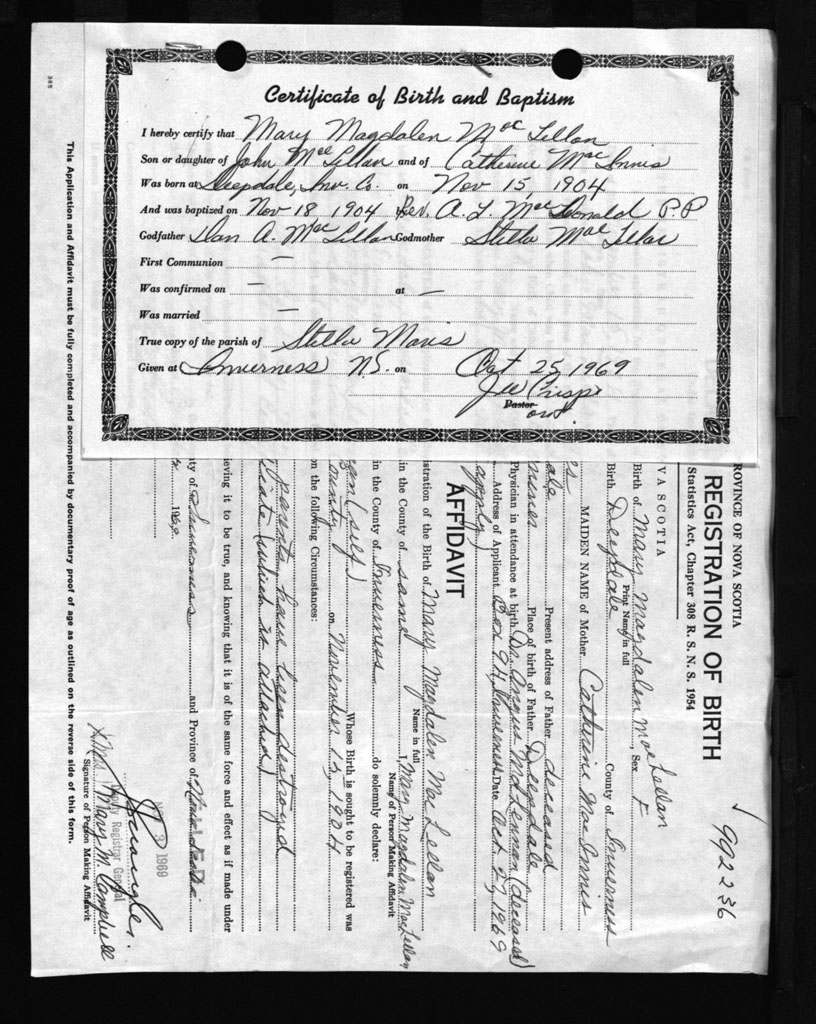 Certificate of Birth and Baptism
I hereby certify that Mary Magdalen Mac Lellan
Son or daughter of John Mac Lellan and of Catherine Mac Innis
Was born at Deepdale, Inv. Co. on Nov 15, 1904
And was baptized on Nov 18 1904 Rev. A. L. MacDonald P.P
Godfather Dan A. MacLellan Godmother Stella Mac Lellan
First Communion —
Was confirmed on — at —
Was married —
True copy of the parish of Stella Maris
Given at Inverness N.S. on Oct 25 1969
Pastor
385
ROVINCE OF NOVA SCOTIA
REGISTRATION OF BIRTH
Statistics Act, Chapter 308 R. S. N. S. 1954
992236
VA SCOTIA
Birth of Mary Magdalen MacLellan Sex F
Print Name in full
Birth Deepdale County of Inverness
MAIDEN NAME of Mother Catherine Mac Innis
Present address of Father deceased
Place of birth of Father Deepdale
Physician in attendance at birth Dr. Angus MacLennan (deceased)
Address of Applicant Box 94, Inverness Date Oct 27, 1969
AFFIDAVIT
istration of the Birth of Mary Magdalen MacLellan
Name in full
in the County of same I, Mary Magdalen MacLellan
Name of Person Making Affidavit
in the County of Inverness do solemnly declare:
(self) Whose Birth is sought to be registered was
ounty on November 15, 1904
on the following Circumstances:
parents have been destroyed
icate (which is attached)
ieving it to be true, and knowing that it is of the same force and effect as if made under
ty of Inverness and Province of Nova Scotia
196
3 1969
Deputy Registrar General
Mrs. Mary M Campbell
Signature of Person Making Affidavit
This Application and Affidavit must be fully completed and accompanied by documentary proof of age as outlined on the reverse side of this form.